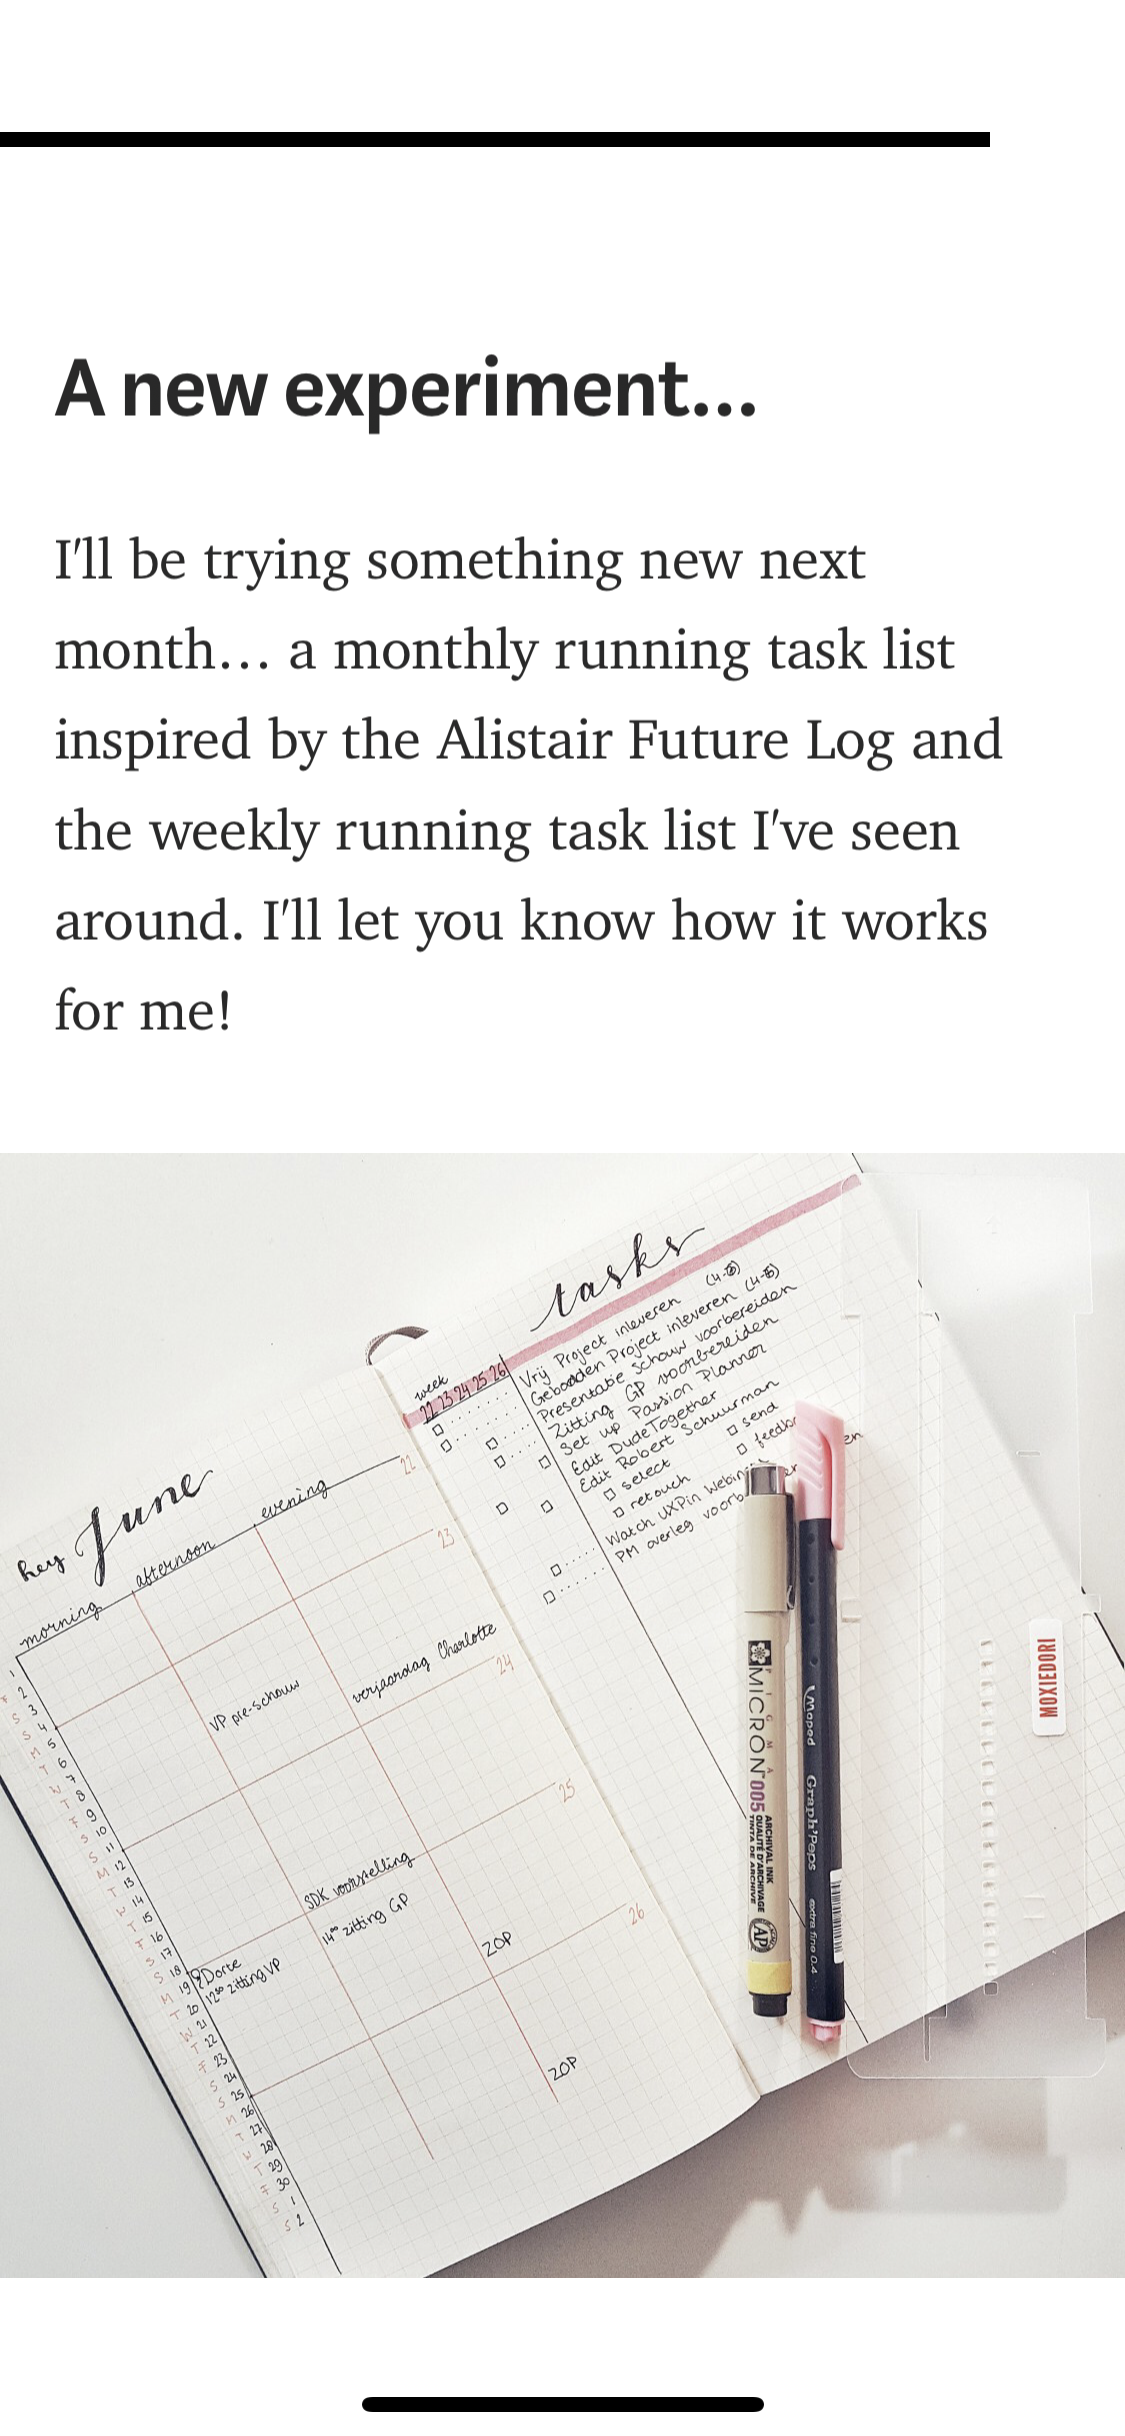 A new experiment...
I'll be trying something new next
month... a monthly running task list
inspired by the Alistair Future Log and
the weekly running task list I've seen
around. I'll let you know how it works
for me!
hey June
morning
afternoon
evening
22
23
24
25
26
1
F 2
S 3
S 4
M 5
T 6
W 7
T 8
F 9
S 10
S 11
M 12
T 13
W 14
T 15
F 16
S 17
S 18
M 19
T 20
W 21
T 22
F 23
S 24
S 25
M 26
T 27
W 28
T 29
F 30
S 1
S 2
VP pre-schouw
verjaardag Charlotte
SDK voorstelling
14⁰⁰ zitting GP
Dorte
12³⁰ zitting VP
ZOP
ZOP
tasks
week
22 23 24 25 26
Vrij Project inleveren
Geboden Project inleveren
Presentatie schouw voorbereiden
Zitting GP voorbereiden
Set up Passion Planner
Edit DudeTogether
Edit Robert Schuurman
select
send
retouch
Watch UXPin
PM overleg
PIGMA
MICRON 005
ARCHIVAL INK
QUALITÉ D'ARCHIVAGE
TINTA DE ARCHIVE
AP
Maped Graph'Peps extra fine 0.4
MOXIEDORI